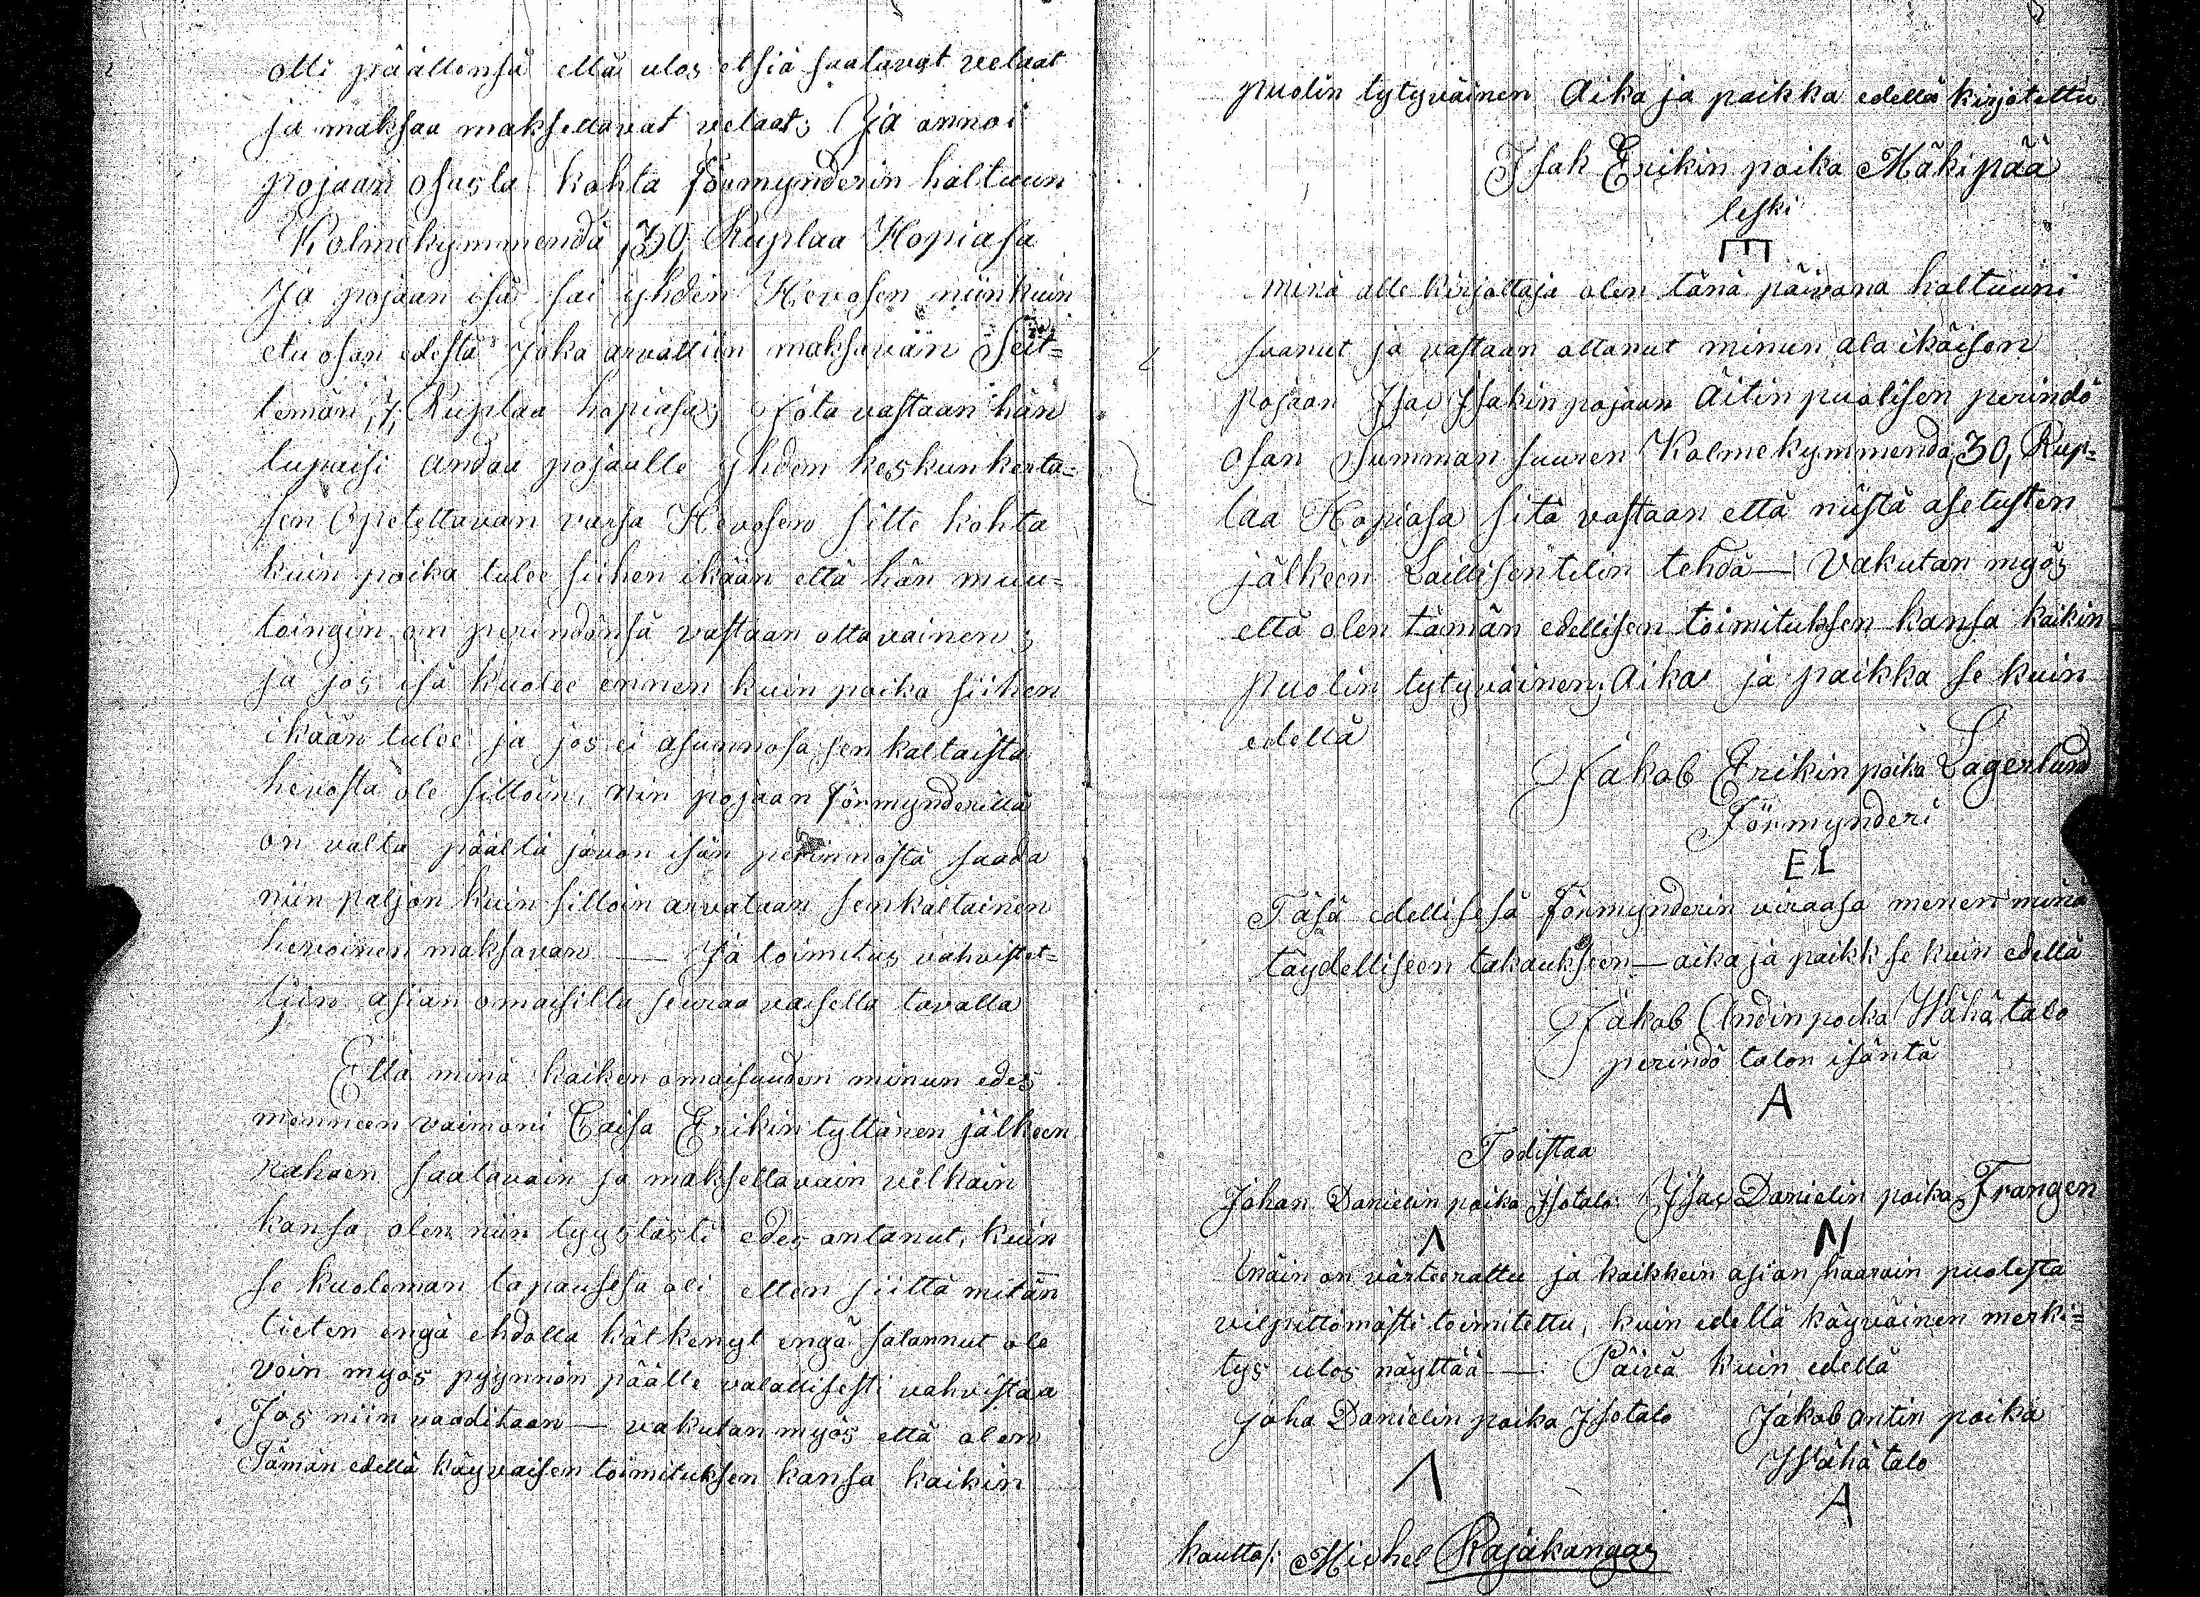 otti päällensä että ulos etsiä saatavat velaat
ja maksaa maksettavat velaat; Ja annoi
pojaan osasta kohta förmynderin haltuun
Kolmekymmendä ,30, Ruplaa Hopiasa
Ja pojaan isä sai yhden Hevosen niinkuin
etu osan edestä Joka arvattiin maksavan Seit=
temän ,7, Ruplaa hopiasa; Jota vastaan hän
lupaisi andaa pojaalle yhden keskunkerta=
sen Opetettavan varsa Hevosen sitte kohta
kuin poika tulee siihen ikään että hän muu=
toingin on perindönsä vastaan ottavainen;
ja jos isä kuolee ennen kuin poika siihen
ikään tulee ja jos ei asunnosa sen kaltaista
hevosta ole silloin, niin pojaan förmynderillä
on valta päältä jävän isän perinnöstä saada
niin paljon kuin silloin arvataan senkaltainen
hevoinen maksavan — Ja toimitus vahvistet=
tiin asian omaisilta seuraavaisella tavalla
Että minä kaiken omaisuuden minun edes
menneen vaimoni Caisa Erikin tyttären jälkeen
rahaen saatavain ja maksettavain velkain
kansa olen niin tyystästi edes antanut, kuin
se kuoleman tapauksesa oli etten siittä mitän
tieten engä ehdolla kätkenyt engä salannut ole
voin myös pyynnön päälle valallisesti vahvistaa
Jos niin vaaditaan — vakutan myös että olen
Tämän edellä käyvaisen toimituksen kansa kaikin
puolin tytyväinen Aika ja paikka edellä kirjotettu
Isak Erikin poika Mäkipää
leski
E
minä alle kirjottaja olen tänä päivänä haltuuni
saanut ja vastaan ottanut minun ala ikäisen
pojaan Isac Isakin pojaan Äitin puolisen perindö
osan Summan suuren Kolmekymmendä ,30, Rup=
laa Hopiasa sitä vastaan että niistä asetusten
jälkeen Laillisen tilin tehdä — Vakutan myös
että olen tämän edellisen toimituksen kansa kaikin
puolin tytyväinen; Aika ja paikka se kuin
edellä
Jakob Erikin poika Lagerlund
Förmynderi
EL
Täsä edellisesä förmynderin viraasa menen minä
täydelliseen takaukseen — aika ja paikk se kuin edellä
Jakob Andin poika Wähätalo
perindö talon isäntä
A
Todistaa
Johan Danielin poika Isotalo: Isac Danielin poika Frangen
Λ N
Näin on värteerattu ja kaikkein asian haarain puolesta
vilpittömästi toimitettu, kuin edellä käyväinen merki=
tys ulos näyttää —: Päivä kuin edellä
Joha Danielin poika Isotalo Jakob antin poika
Wähä talo
Λ A
kautta/: Michel Rajakangas